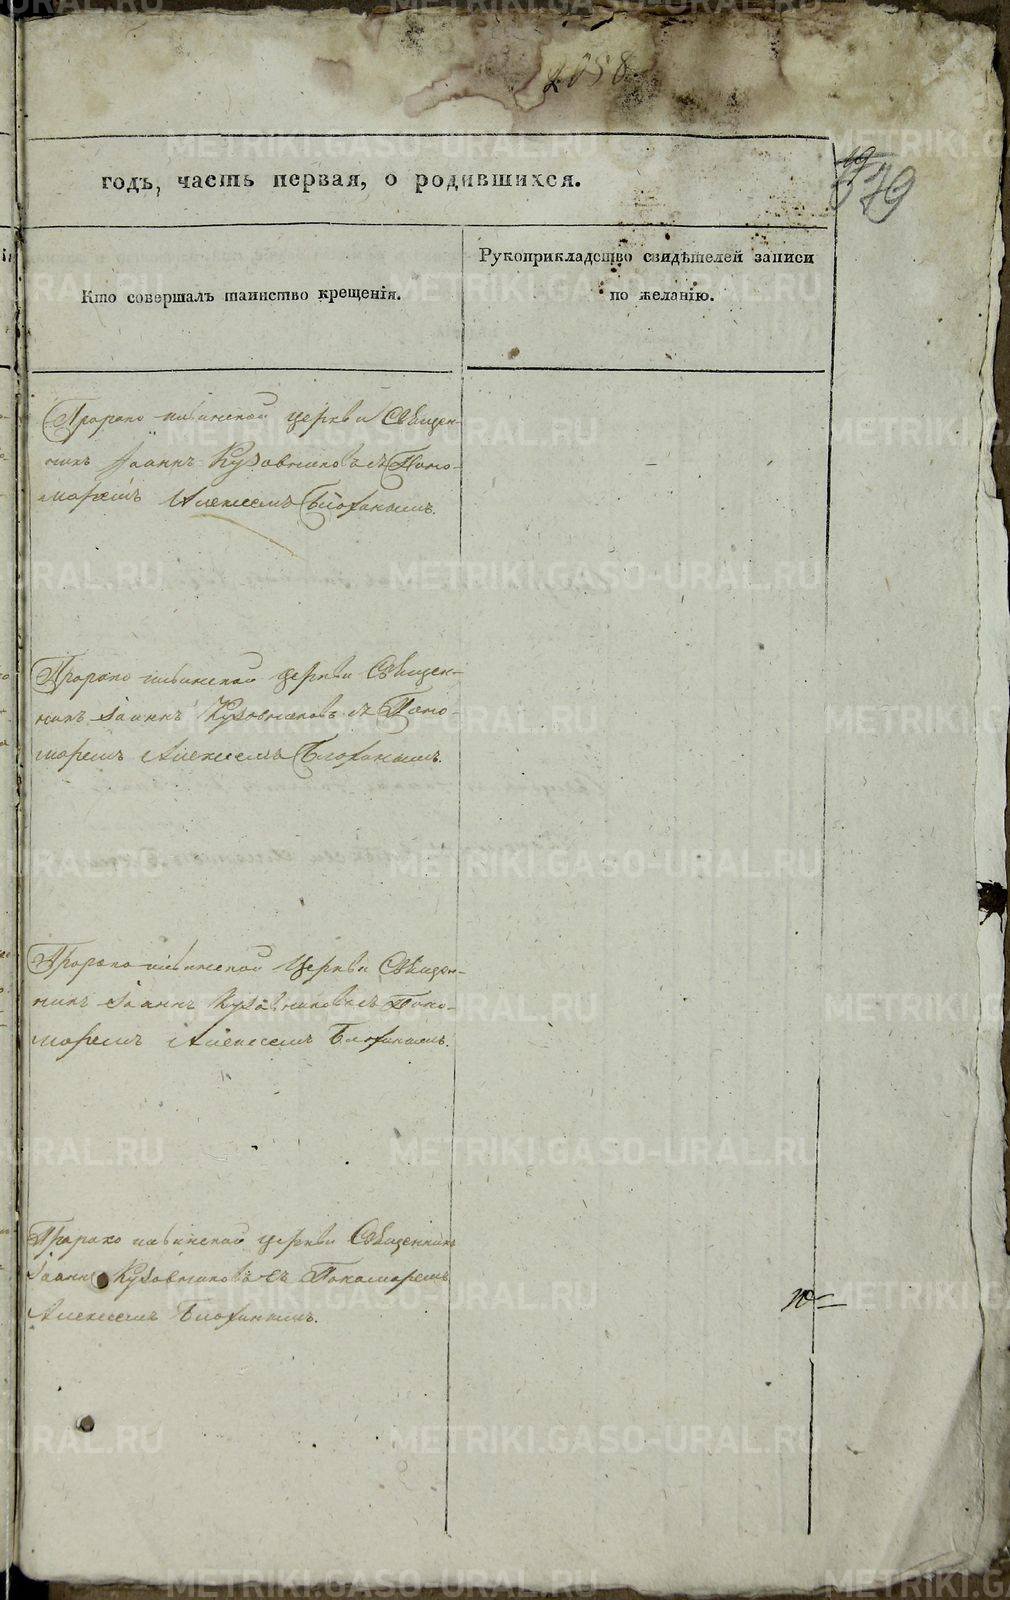 2058
годъ, часть первая, о родившихся.
379
Кто совершалъ таинство крещенія.
Рукоприкладство свидѣтелей записи
по желанію.
Пророко ильинской церкви Священ-
никъ Іоаннъ Кузовниковъ съ Поно-
маремъ Алексеемъ Блохинымъ.
Пророко ильинской церкви Священ-
никъ Іоаннъ Кузовниковъ съ Поно-
маремъ Алексеемъ Блохинымъ.
Пророко ильинской церкви Священ-
никъ Іоаннъ Кузовниковъ съ Поно-
маремъ Алексеемъ Блохинымъ.
Пророко ильинской церкви Священникъ
Іоаннъ Кузовниковъ съ Пономаремъ
Алексеемъ Блохинымъ.
METRIKI.GASO-URAL.RU